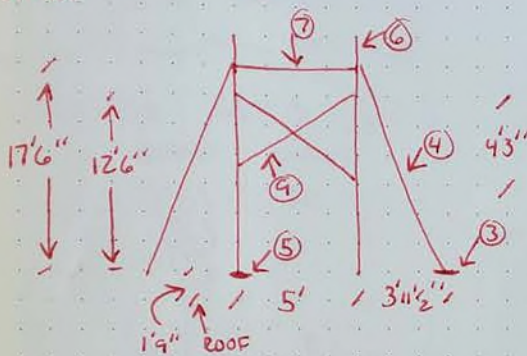 ⑦
⑥
17'6"
12'6"
④
4'3"
⑨
⑤
③
5'
3'11½"
1'9"
ROOF